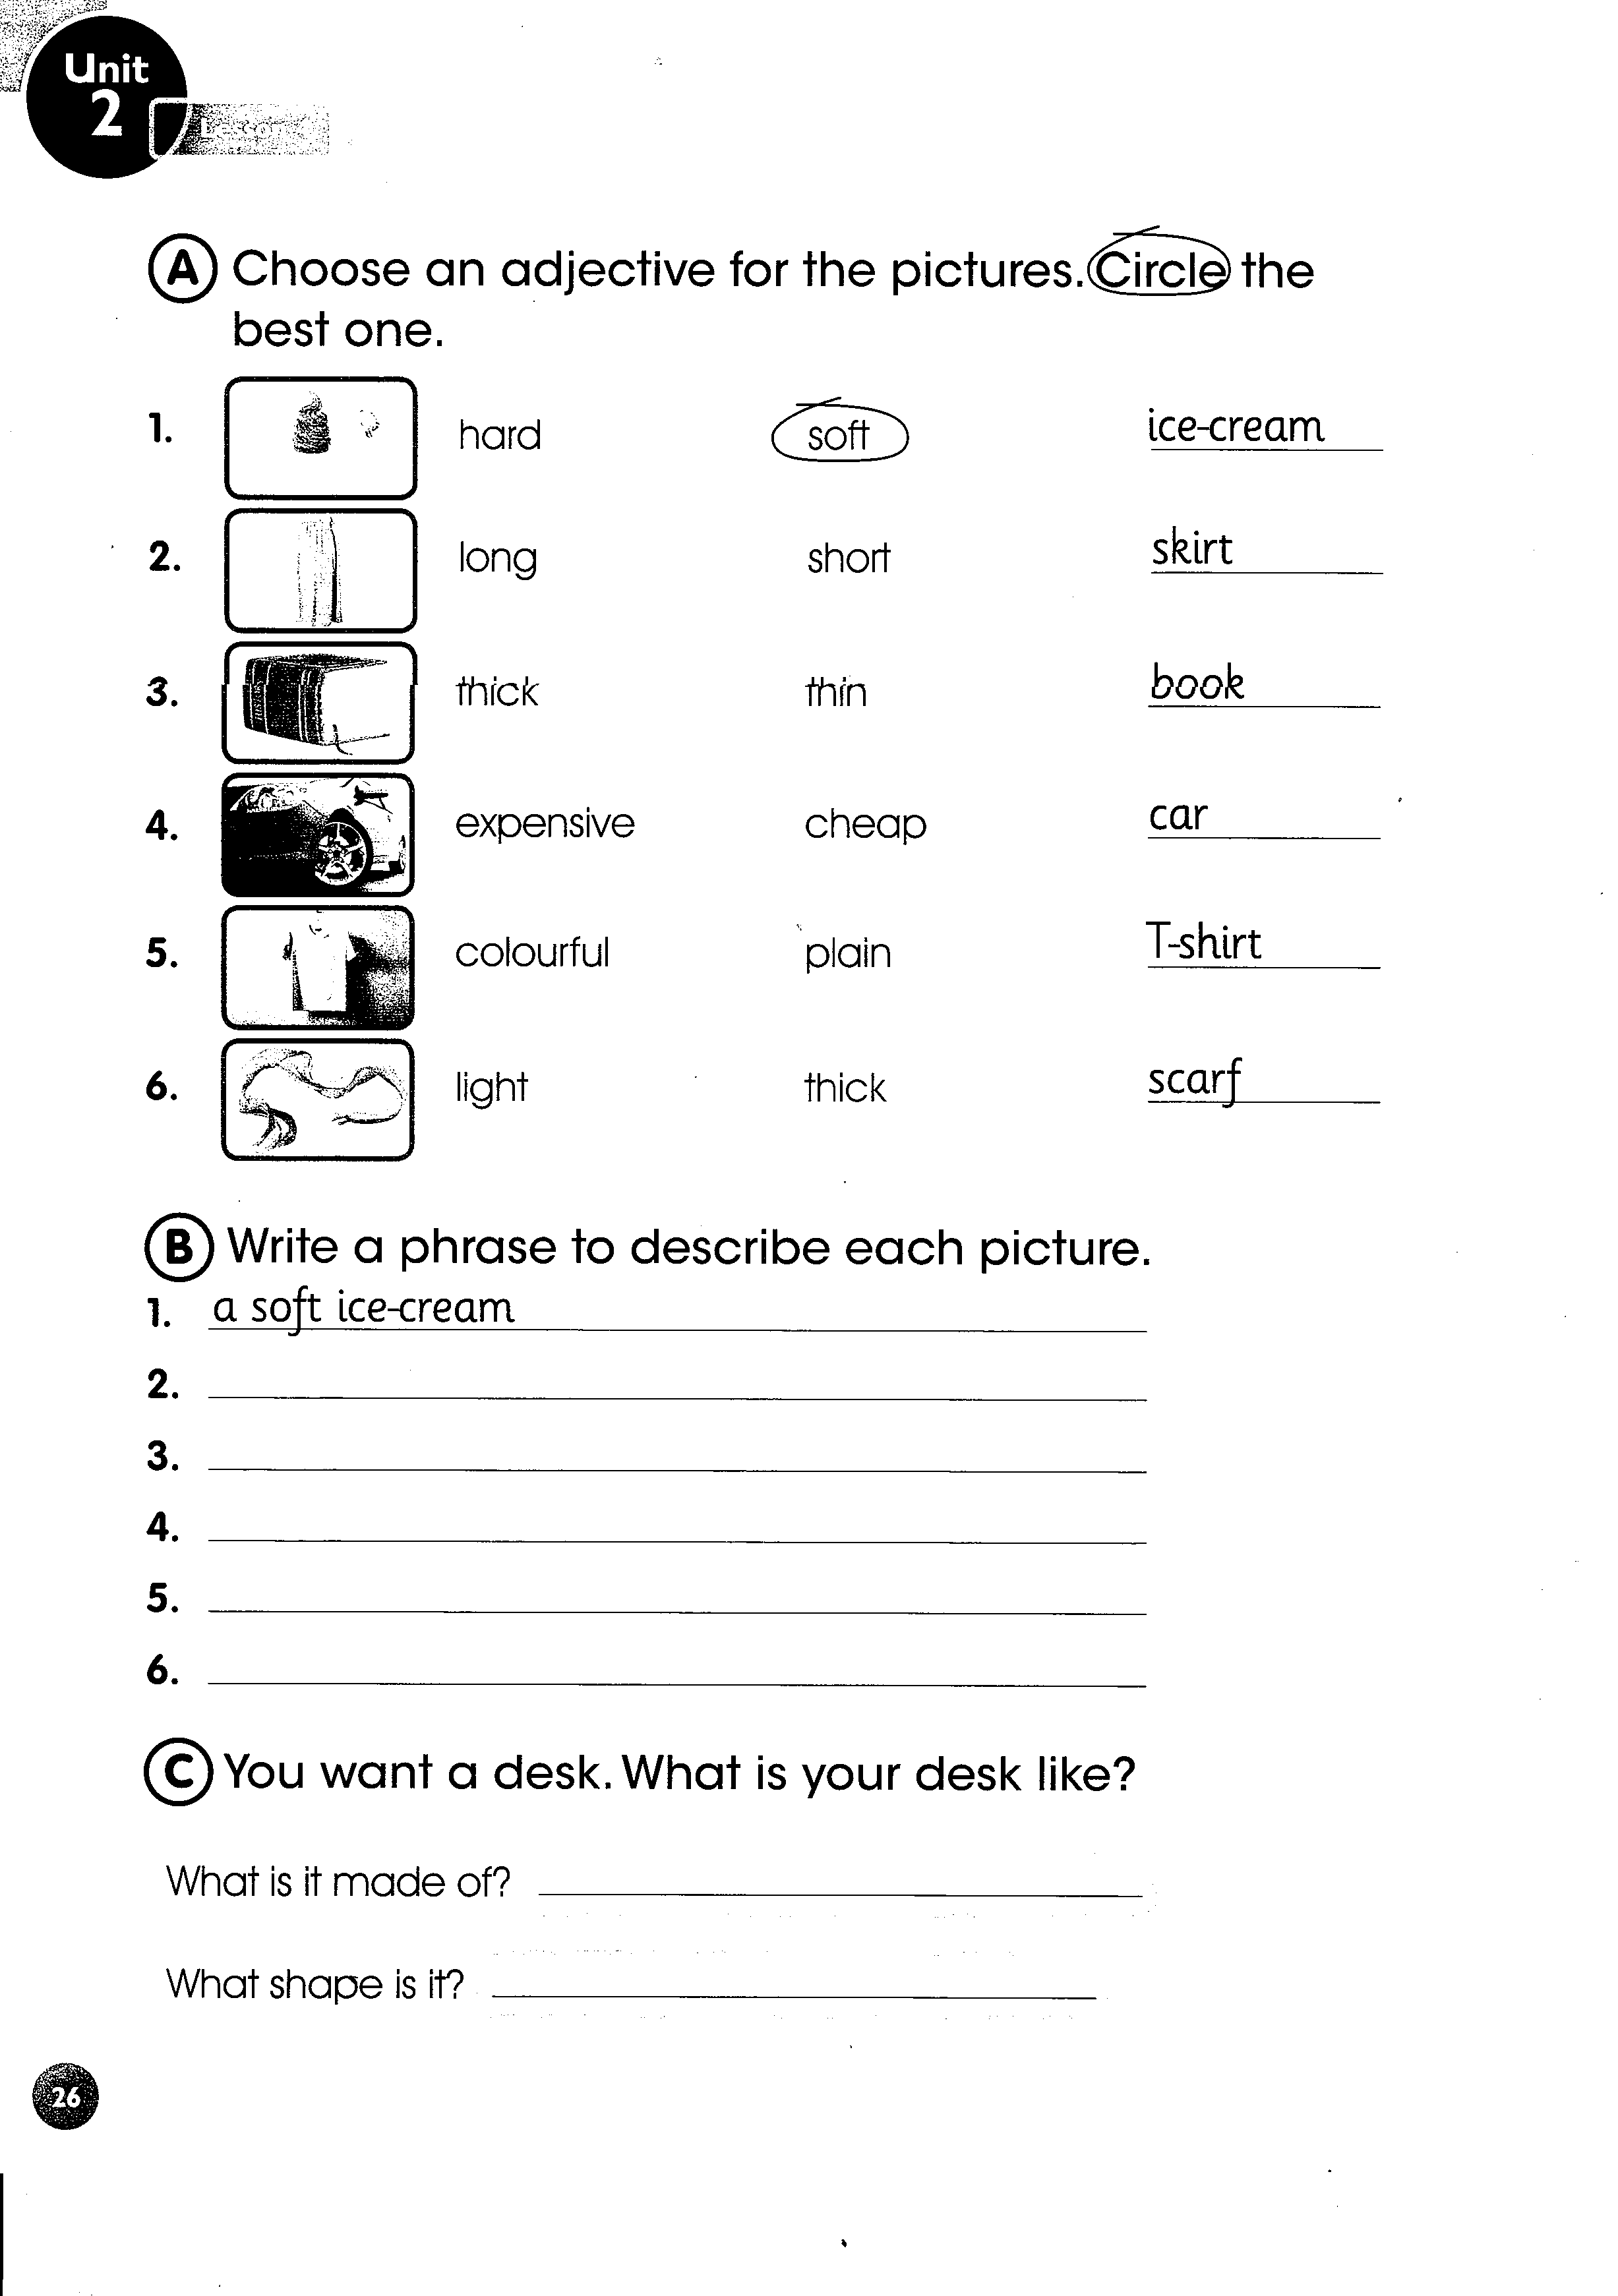 Unit
2
Lesson 4
A Choose an adjective for the pictures. Circle the
best one.
1. hard soft ice-cream
2. long short skirt
3. thick thin book
4. expensive cheap car
5. colourful plain T-shirt
6. light thick scarf
B Write a phrase to describe each picture.
1. a soft ice-cream
2.
3.
4.
5.
6.
C You want a desk. What is your desk like?
What is it made of?
What shape is it?
26